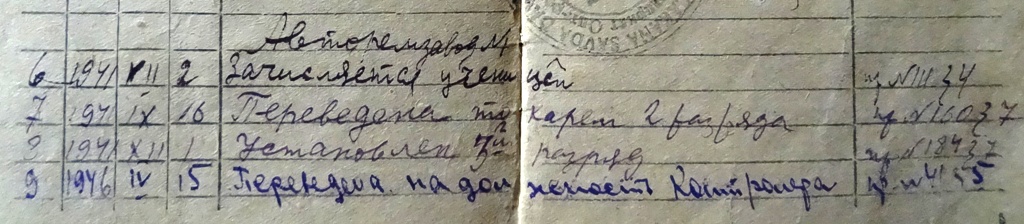 Авторемзавод
6 1941 VII 2 Зачисляется ученицей пр N 1134
7 1941 IX 16 Переведена токарем 2 разряда пр N 16037
8 1941 XII 1 Установлен разряд пр N 18437
9 1946 IV 15 Переведена на должность Контролера пр N